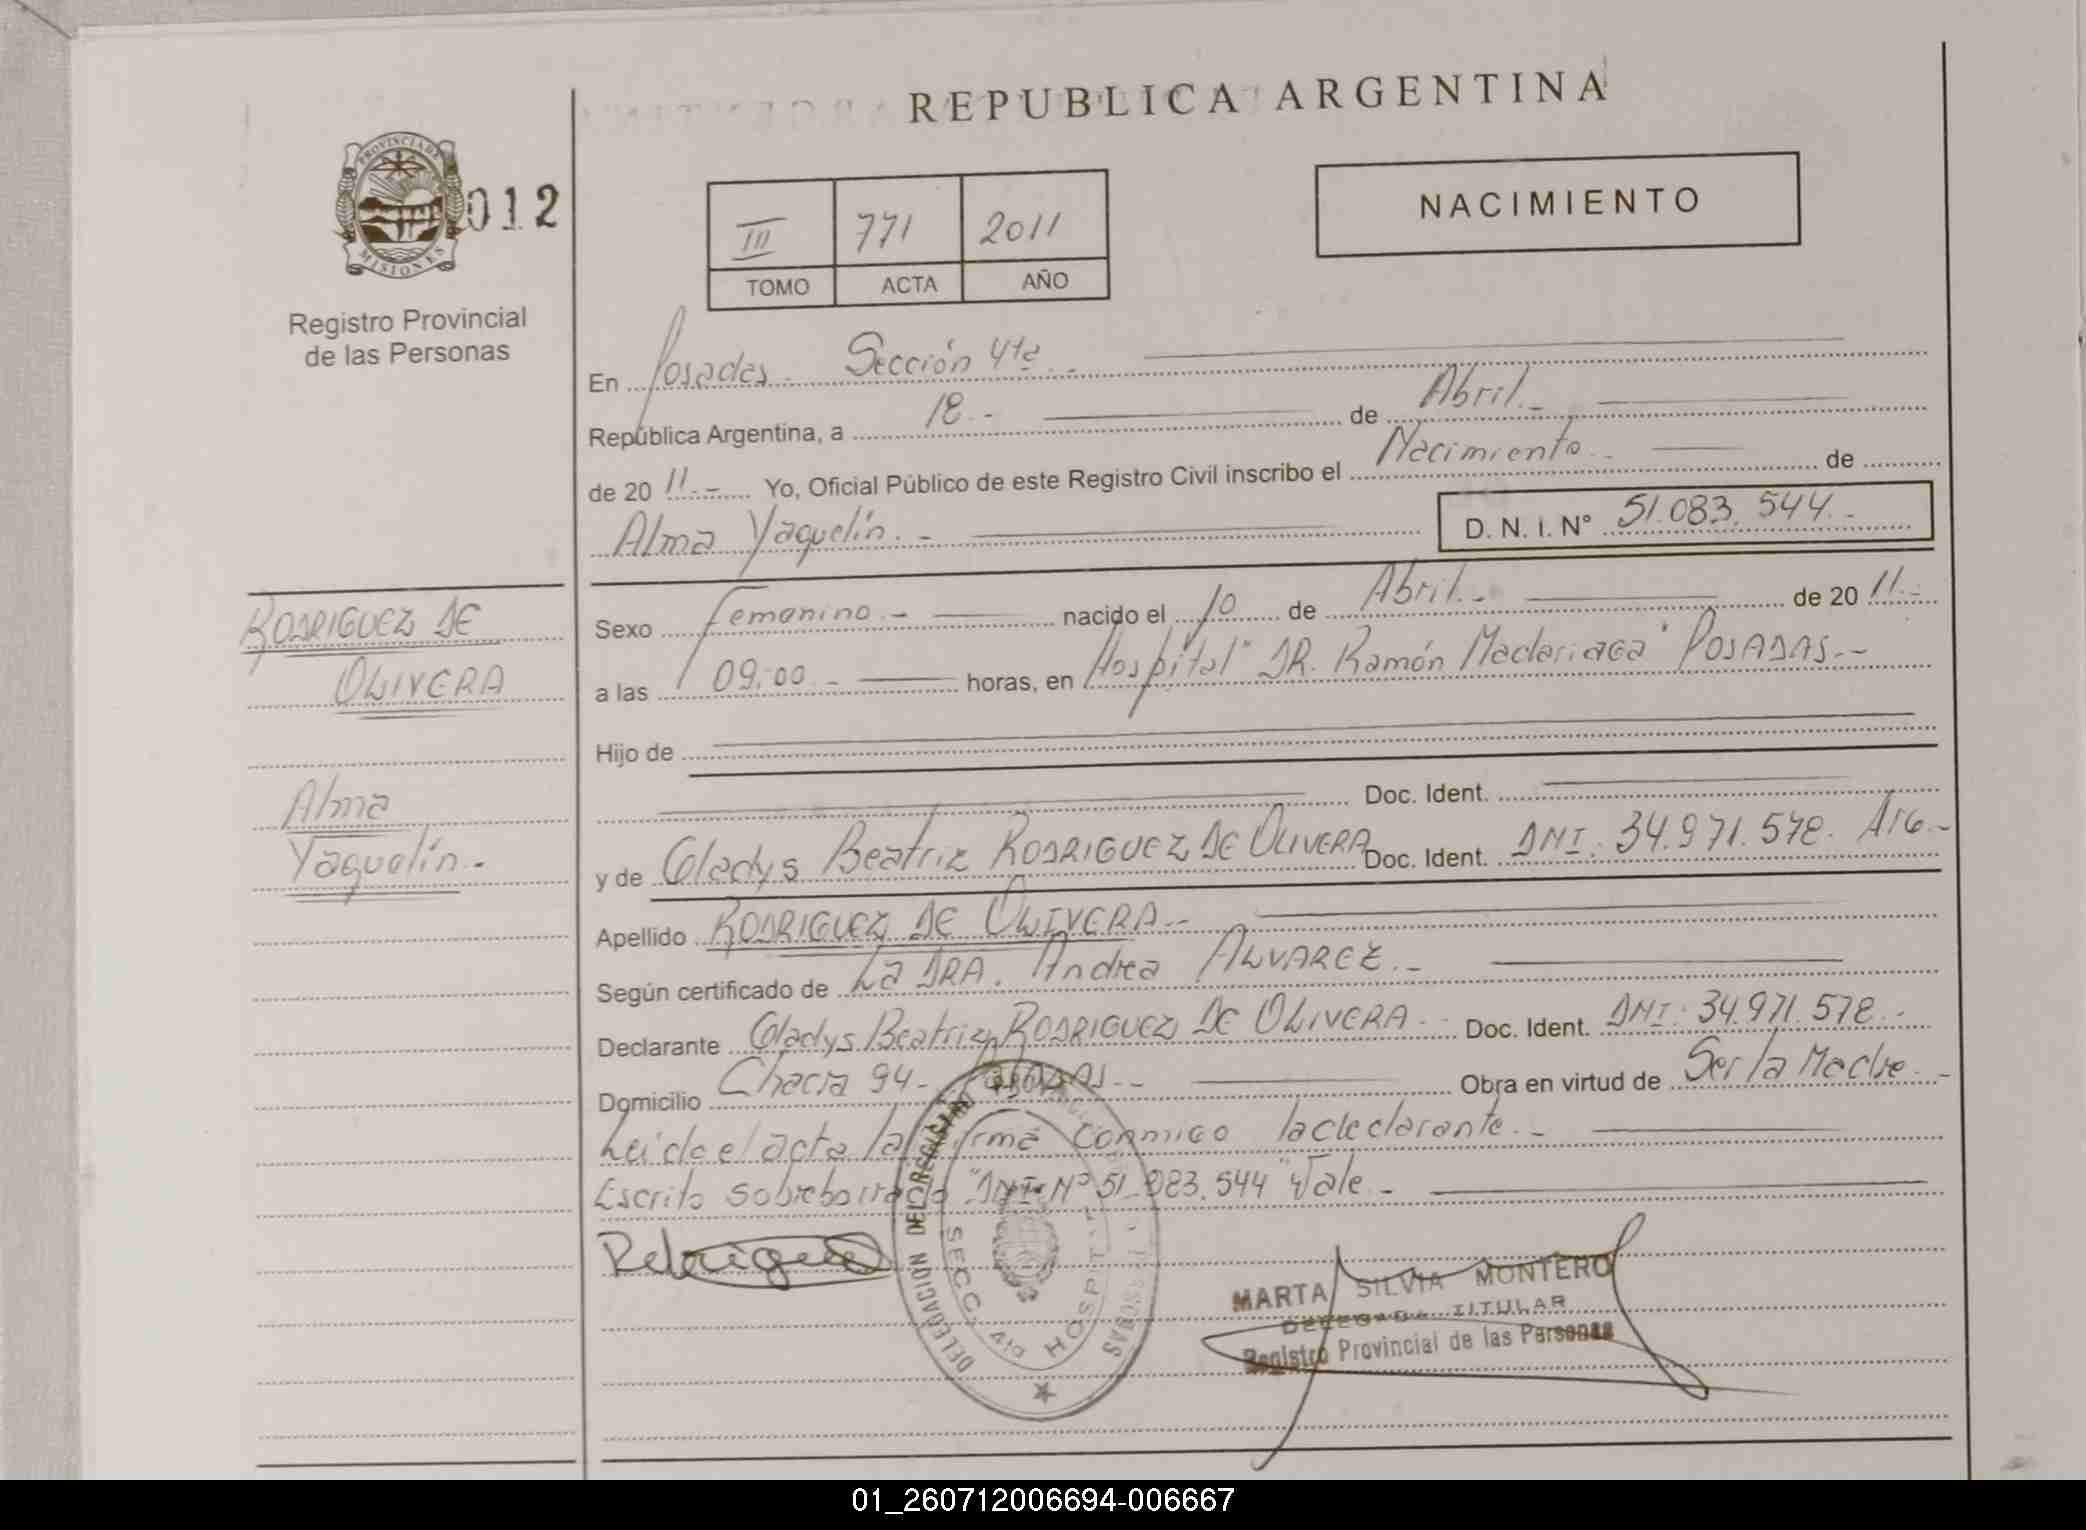 REPUBLICA ARGENTINA
PROVINCIA DE
MISIONES
012
Registro Provincial
de las Personas
III 771 2011
TOMO ACTA AÑO
NACIMIENTO
En Posadas. Sección 4ta.-
República Argentina, a 18.- de Abril.-
de 20 11.- Yo, Oficial Público de este Registro Civil inscribo el Nacimiento.- de
Alma Yaquelín.- D. N. I. N° 51.083.544.-
RODRIGUEZ DE
OLIVERA
Alma
Yaquelín.-
Sexo Femenino.- nacido el 10 de Abril.- de 20 11.-
a las 09:00.- horas, en Hospital "DR. Ramón Madariaga" POSADAS.-
Hijo de
Doc. Ident.
y de Gladys Beatriz RODRIGUEZ DE OLIVERA Doc. Ident. DNI. 34.971.578. Arg.-
Apellido RODRIGUEZ DE OLIVERA.-
Según certificado de La DRA. Andrea ALVAREZ.-
Declarante Gladys Beatriz RODRIGUEZ DE OLIVERA.- Doc. Ident. DNI. 34.971.578.-
Domicilio Chacra 94- POSADAS.- Obra en virtud de Ser la Madre.-
Leida el acta la firma conmigo la declarante.-
Escrito sobreborrado "DNI. Nº 51.083.544" Vale.-
DELEGACION DEL REGISTRO
SECC. 4ta HOSPITAL
MARTA SILVIA MONTERO
DELEGADA TITULAR
Registro Provincial de las Personas
01_260712006694-006667